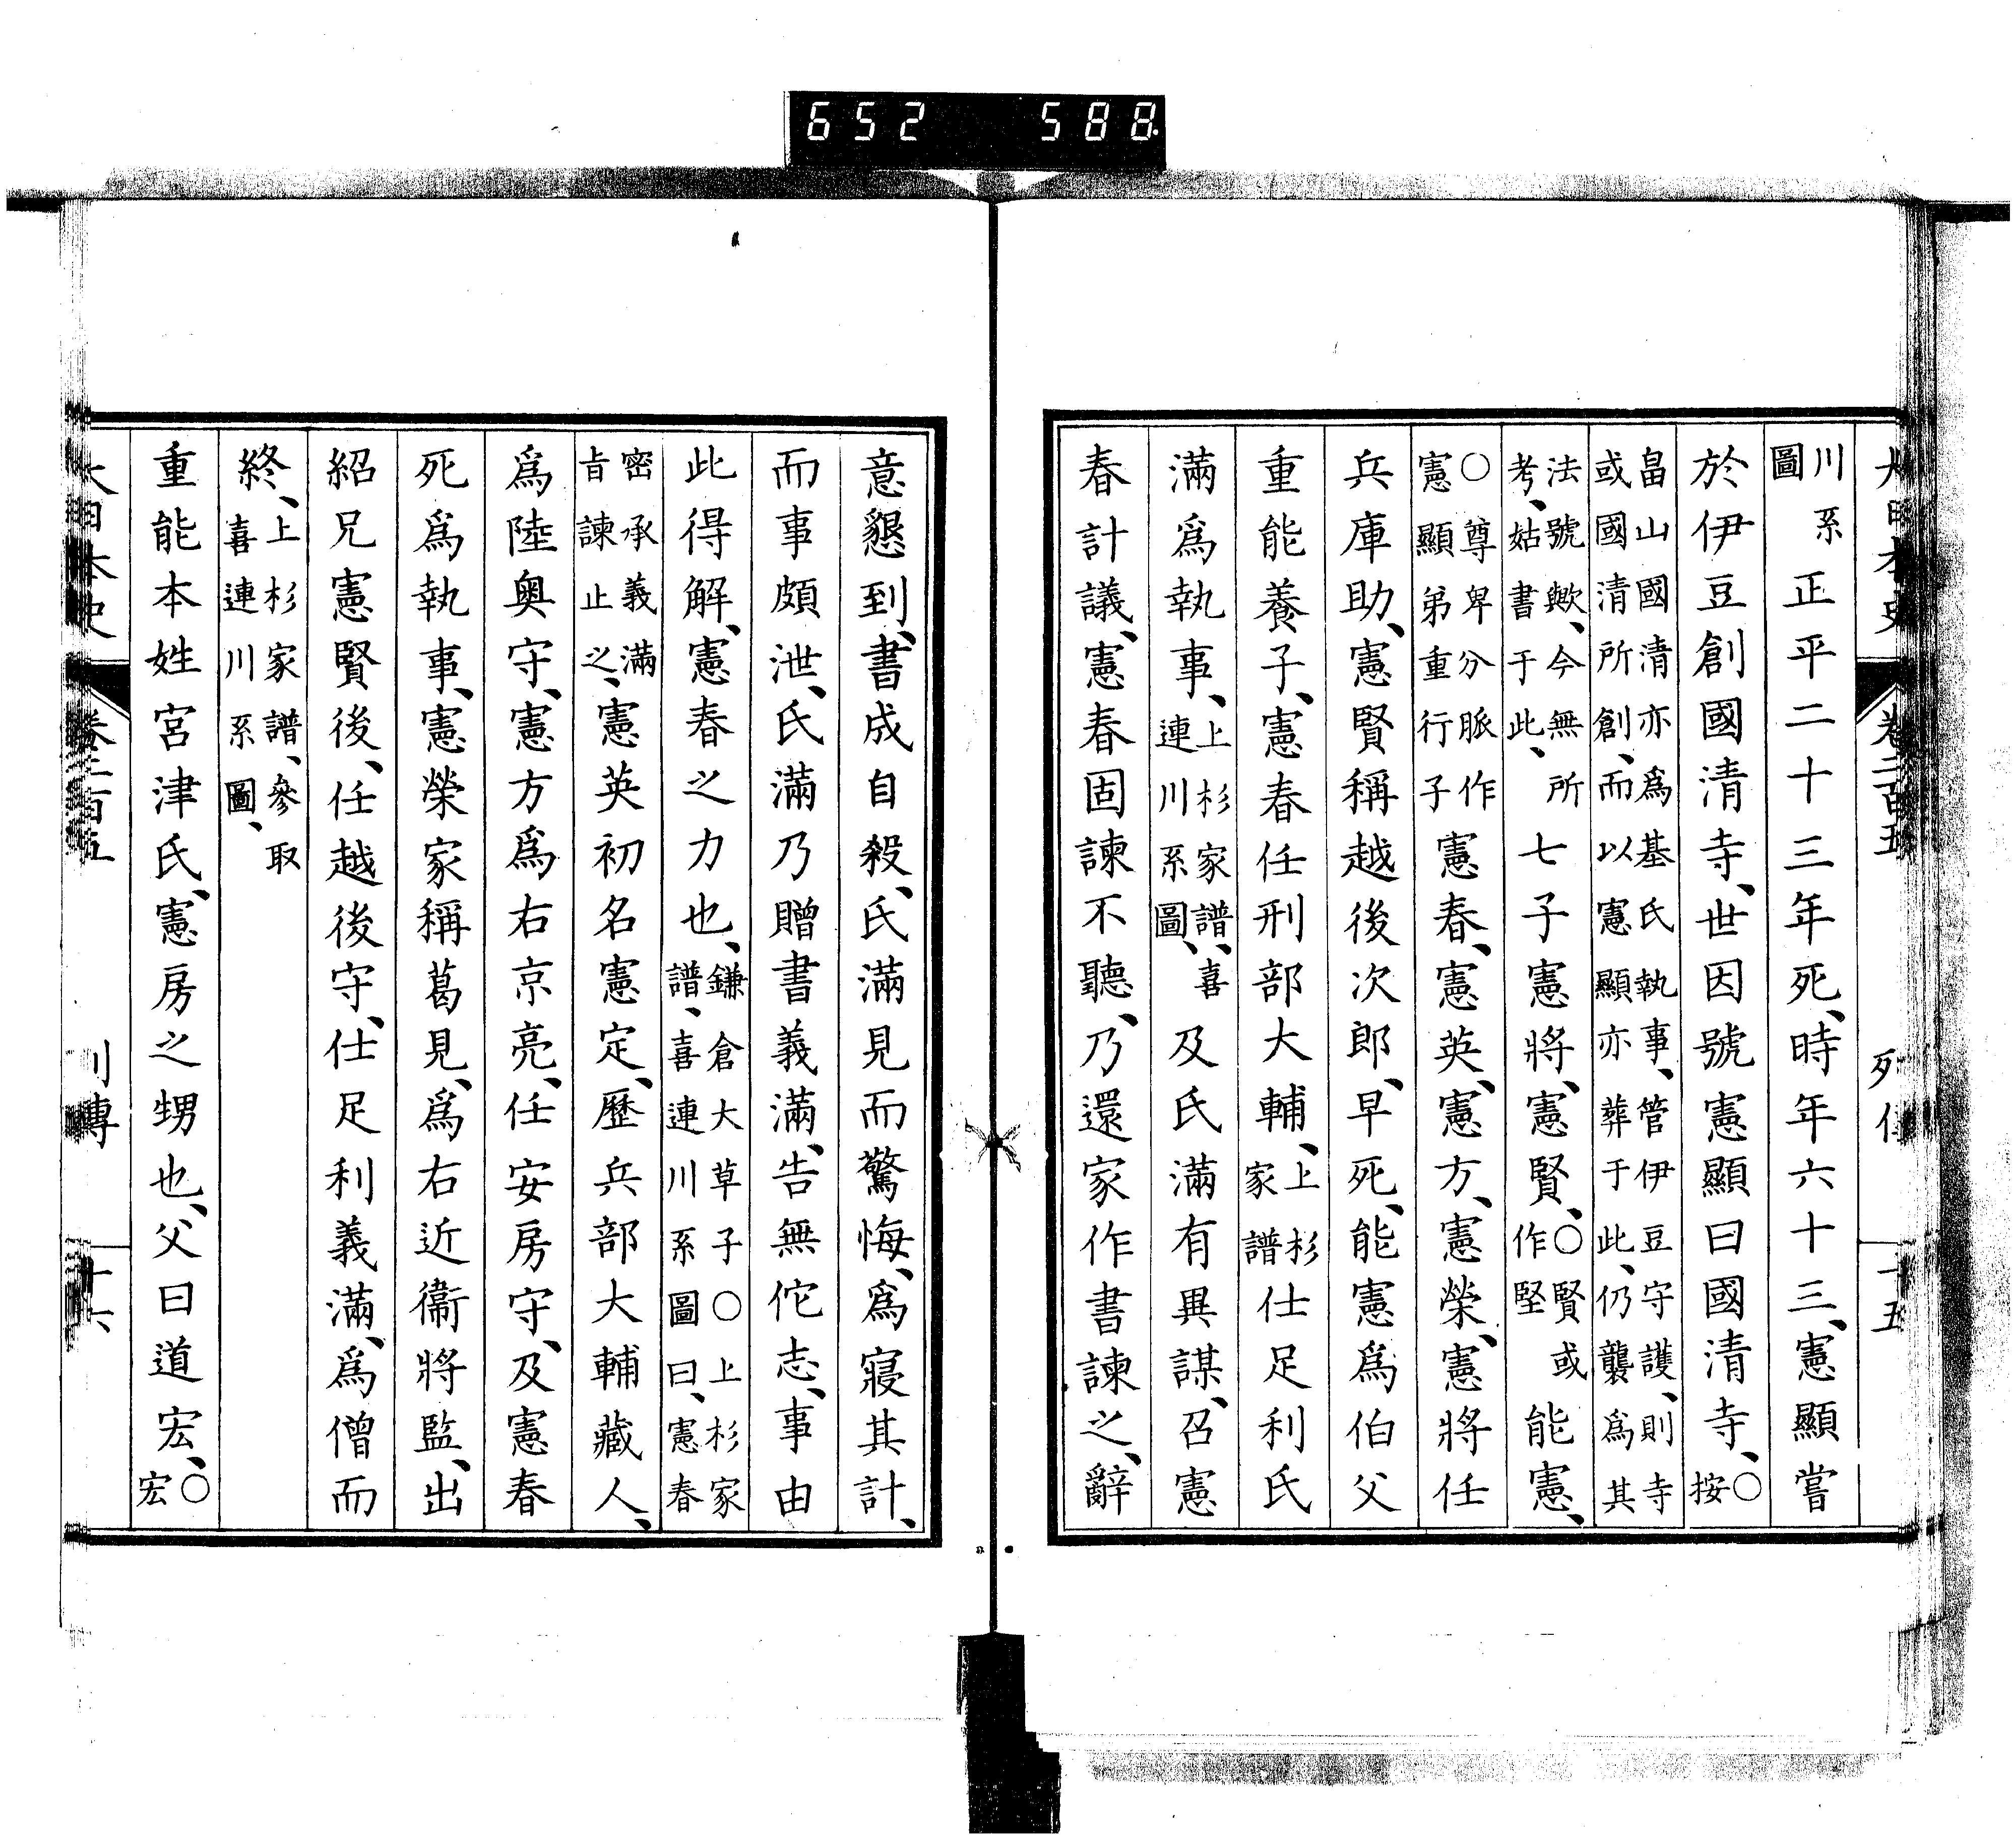 652 588
大日本史 卷二百五 列傳 十五
川系圖 正平二十三年死、時年六十三、憲顯嘗
於伊豆創國清寺、世因號憲顯曰國清寺、○按
畠山國清亦爲基氏執事、管伊豆守護、則寺
或國清所創、而以憲顯亦葬于此、仍襲爲其
法號歟、今無所
考、姑書于此、七子憲將、憲賢、○賢或作堅 能憲、
○尊卑分脈作
憲顯弟重行子 憲春、憲英、憲方、憲榮、憲將任
兵庫助、憲賢稱越後次郎、早死、能憲爲伯父
重能養子、憲春任刑部大輔、上杉家譜 仕足利氏
滿爲執事、上杉家譜、喜連川系圖、 及氏滿有異謀、召憲
春計議、憲春固諫不聽、乃還家作書諫之、辭
意懇到、書成自殺、氏滿見而驚悔、爲寢其計、
而事頗泄、氏滿乃贈書義滿、告無佗志、事由
此得解、憲春之力也、鎌倉大草子○上杉家
譜、喜連川系圖曰、憲春
密承義滿
旨諫止之、憲英初名憲定、歷兵部大輔藏人、
爲陸奧守、憲方爲右京亮、任安房守、及憲春
死爲執事、憲榮家稱葛見、爲右近衞將監、出
紹兄憲賢後、任越後守、仕足利義滿、爲僧而
終、上杉家譜、參取
喜連川系圖、
重能本姓宮津氏、憲房之甥也、父曰道宏、○宏
大日本史 卷二百五 列傳 十六